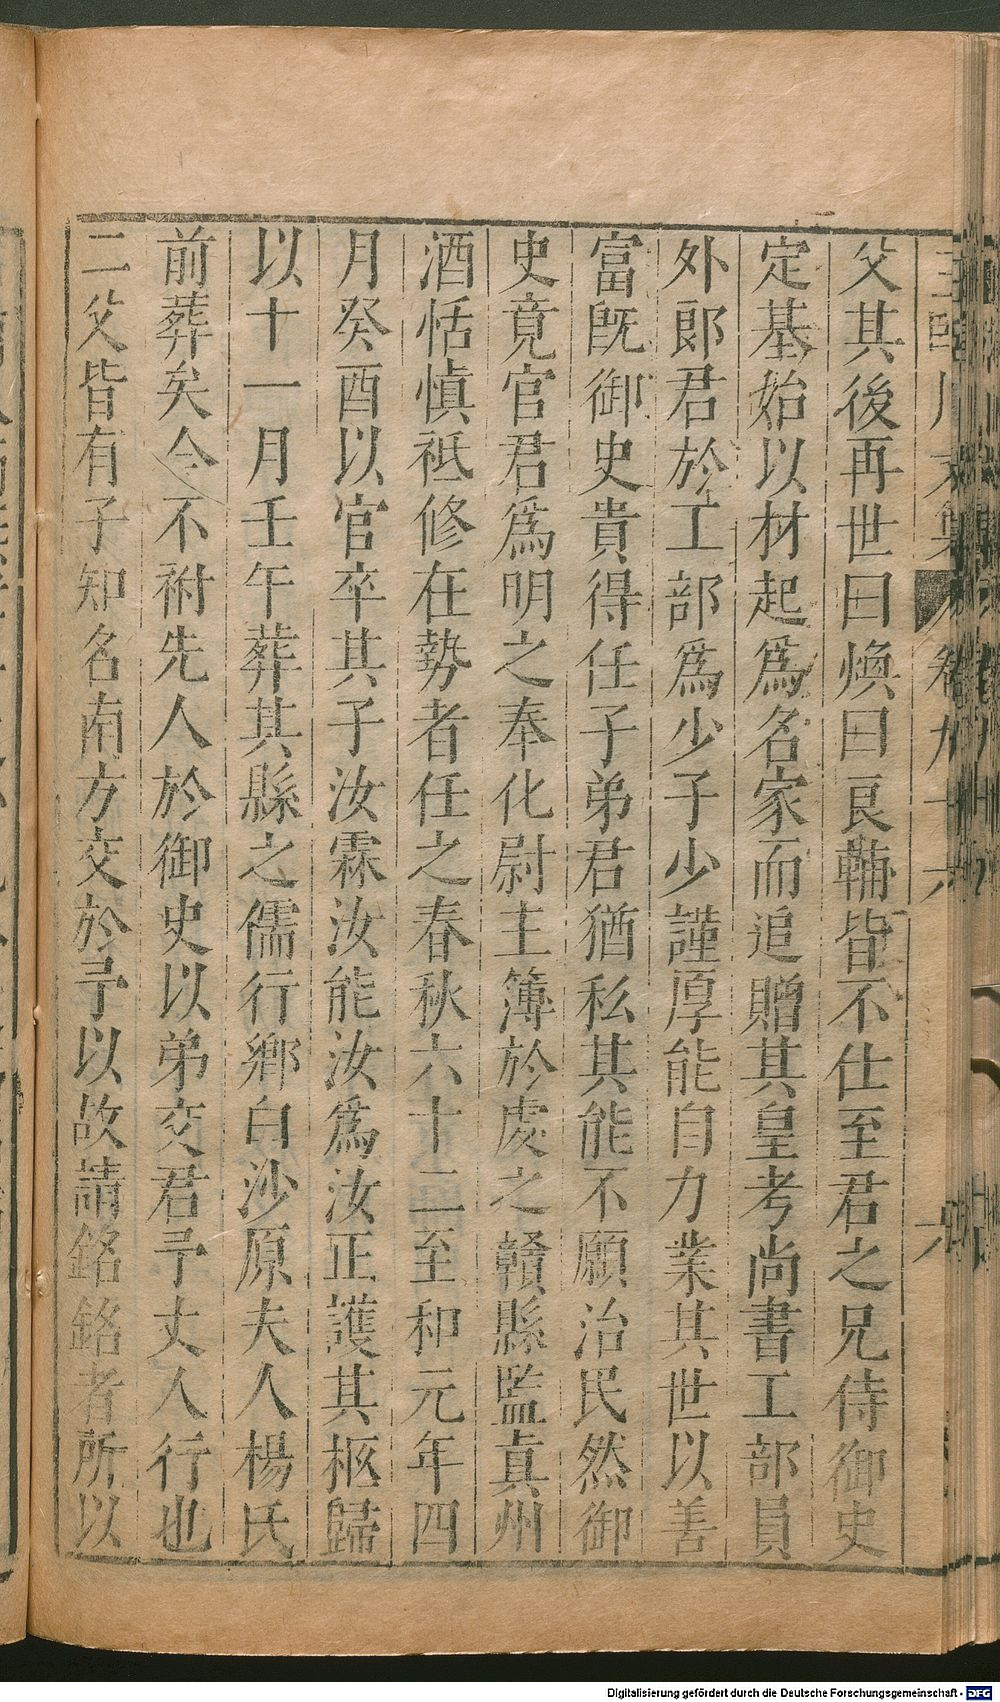 父其後再世曰煥曰良輔皆不仕至君之兄侍御史
定基始以材起爲名家而追贈其皇考尚書工部員
外郎君於工部爲少子少謹厚能自力業其世以善
富既御史貴得任子弟君猶私其能不願治民然御
史竟官君爲明之奉化尉主簿於䖏之贛縣監真州
酒恬慎祗修在勢者任之春秋六十二至和元年四
月癸酉以官卒其子汝霖汝能汝爲汝正護其柩歸
以十一月壬午葬其縣之儒行鄉白沙原夫人楊氏
前葬矣今不祔先人於御史以弟交君予丈人行也
二父皆有子知名南方交於予以故請銘銘者所以
Digitalisierung gefördert durch die Deutsche Forschungsgemeinschaft - DFG